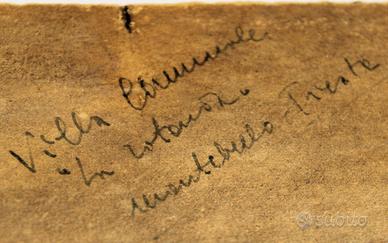 Villa
"La rotonda"
Montebello - Trieste
subito